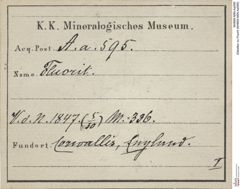 K. K. Mineralogisches Museum.
Acq. Post. A.a. 595.
Name. Fluorit.
V.d.N. 1847 (5/10) M. 336.
Fundort Cornwallis, England.
I